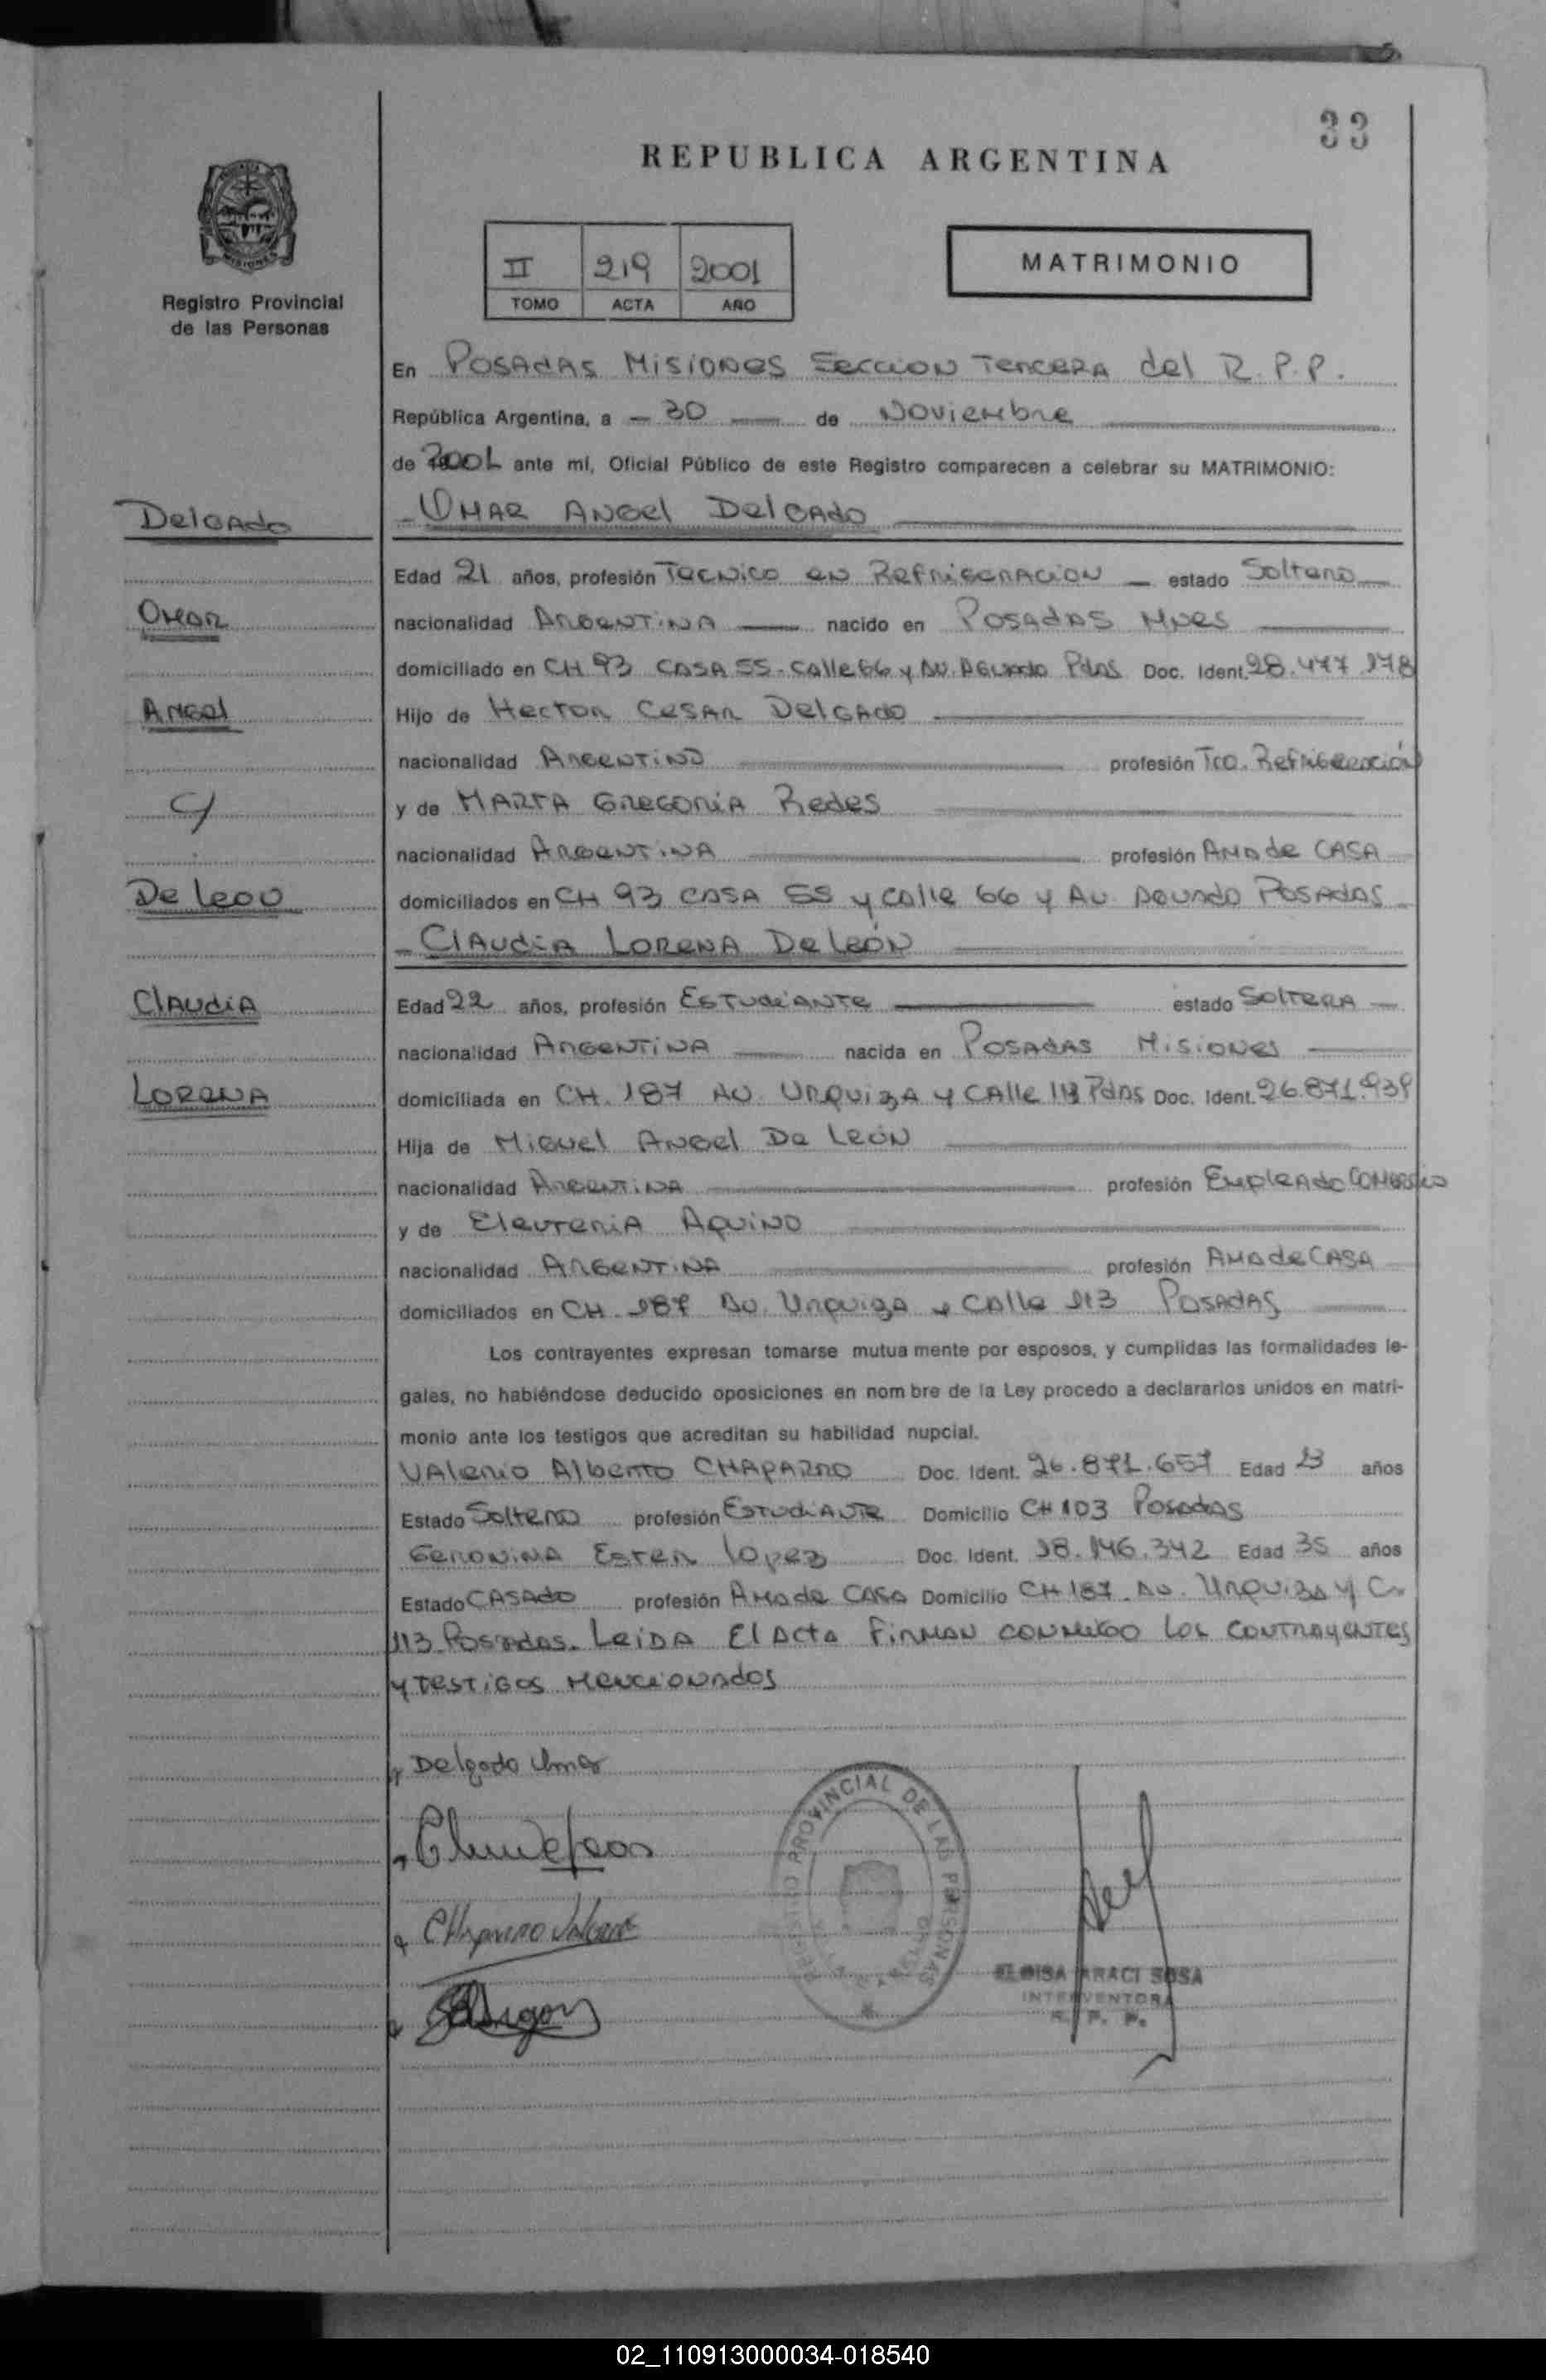 33
REPUBLICA ARGENTINA
MISIONES
Registro Provincial
de las Personas
II 219 2001
TOMO ACTA AÑO
MATRIMONIO
En POSADAS MISIONES SECCION TERCERA del R.P.P.
República Argentina, a - 30 — de Noviembre
de 2001 ante mí, Oficial Público de este Registro comparecen a celebrar su MATRIMONIO:
Delgado
- OMAR ANGel DelGAdo
Edad 21 años, profesión Tecnico en Refrigeracion — estado Soltero
Omar
nacionalidad Argentina — nacido en Posadas Mnes
domiciliado en CH 93 CASA 55 - Calle 66 y Av. Aguado Pdas Doc. Ident. 28.477.178
Angel
Hijo de Hector Cesar Delgado
nacionalidad Argentino profesión Tco. Refrigeración
c/
y de MARTA Gregoria Redes
nacionalidad Argentina profesión Ama de CASA
De Leon
domiciliados en CH 93 CASA 55 y calle 66 y Av Aguado Posadas
- Claudia Lorena De León
Claudia
Edad 22 años, profesión Estudiante estado Soltera —
nacionalidad Argentina — nacida en Posadas Misiones
Lorena
domiciliada en CH. 187 Av. Urquiza y Calle 113 Pdas Doc. Ident. 26.871.939
Hija de Miguel Angel De León
nacionalidad Argentina profesión Empleado Comercio
y de Eleuteria Aquino
nacionalidad Argentina profesión Ama de CASA
domiciliados en CH. 187 Av. Urquiza y Calle 113 Posadas
Los contrayentes expresan tomarse mutua mente por esposos, y cumplidas las formalidades le-
gales, no habiéndose deducido oposiciones en nom bre de la Ley procedo a declararlos unidos en matri-
monio ante los testigos que acreditan su habilidad nupcial.
Valerio Alberto CHAPARRO Doc. Ident. 26.871.657 Edad 23 años
Estado Soltero profesión Estudiante Domicilio CH 103 Posadas
Geronima Ester Lopez Doc. Ident. 18.146.342 Edad 35 años
Estado CASAdo profesión Ama de CASA Domicilio CH 187 Av. Urquiza y C.
113 Posadas. Leida El Acta Firman conmigo los contrayentes
y testigos mencionados
Delgado Omar
Chaparro Valerio
REGISTRO PROVINCIAL DE LAS PERSONAS
ELOISA ARACI SOSA
INTERVENTORA
R. P. P.
02_110913000034-018540